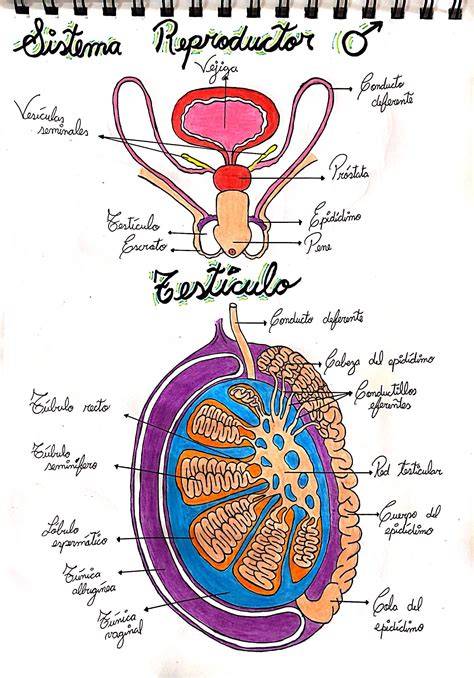 Sistema Reproductor ♂
Vejiga
Conducto
deferente
Vesículas
seminales
Próstata
Testículo
Escroto
Epidídimo
Pene
Testículo
Conducto deferente
Cabeza del epidídimo
Conductillos
eferentes
Túbulo recto
Túbulo
seminífero
Red testicular
Lóbulo
espermático
Cuerpo del
epidídimo
Túnica
albugínea
Túnica
vaginal
Cola del
epidídimo